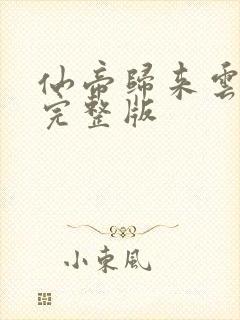 仙帝歸来雲
完整版
小東風